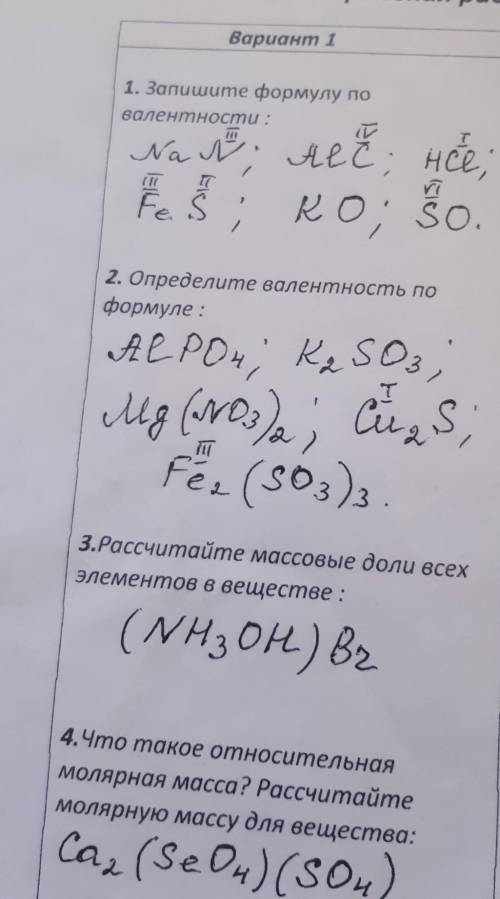 Вариант 1
1. Запишите формулу по
валентности :
III IV I
NaN; AlC; HCl;
III II VI
FeS; KO; SO.
2. Определите валентность по
формуле :
AlPO4; K2SO3;
I
Mg(NO3)2; Cu2S;
III
Fe2(SO3)3.
3.Рассчитайте массовые доли всех
элементов в веществе :
(NH3OH)Br
4.Что такое относительная
молярная масса? Рассчитайте
молярную массу для вещества:
Ca2(SeO4)(SO4)